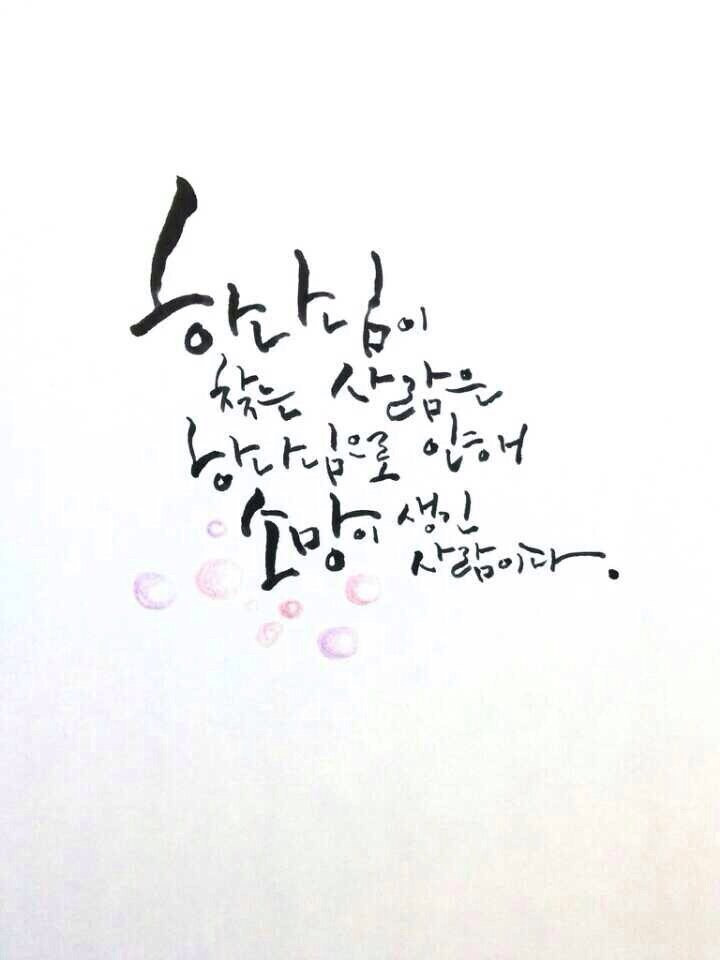 하나님이
찾은 사람은
하나님으로 인해
소망이 생긴
사람이다.